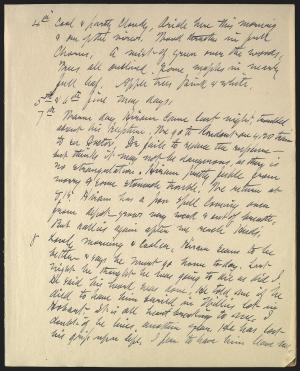 4th Cool & partly cloudy, Bride here this morning
& one of the nicest. Wood thrushes in full
Chorus. A mist of green over the woods,
Trees all outlined. Some maples in nearly
full leaf. Apple trees pink & white.
5th & 6th fine May days.
7th Warm day Hiram came last night; troubled
about his rupture. We go to Kingston on 4,20 train
to see Doctor. Dr fails to reduce the rupture —
but thinks it may not be dangerous, as there is
no strangulation. Hiram pretty feeble from
worry & some stomach trouble. We return at
7,15. Hiram has a poor spell coming over
from depot - grows very weak & out of breath,
But rallies again after we reach Slabsides,
8 Lovely morning & cooler. Hiram seems to be
better & says he must go home today. Last
night he thought he was going to die as did I.
He said his heart was gone. He told me if he
died to have him buried in
Hobart - It is all heart breaking to me. I
doubt if he lives another year. He has lost
his grip upon life. I fear to have him leave me